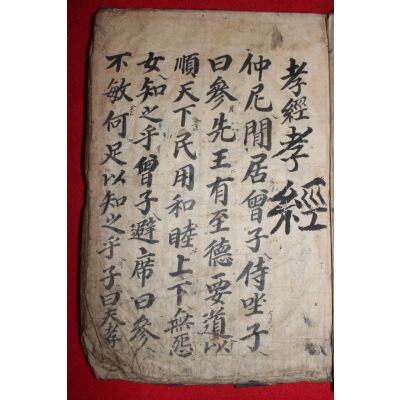 孝經孝經
仲尼閒居曾子侍坐子
曰參先王有至德要道以
順天下民用和睦上下無怨
女知之乎曾子避席曰參
不敏何足以知之乎子曰夫孝